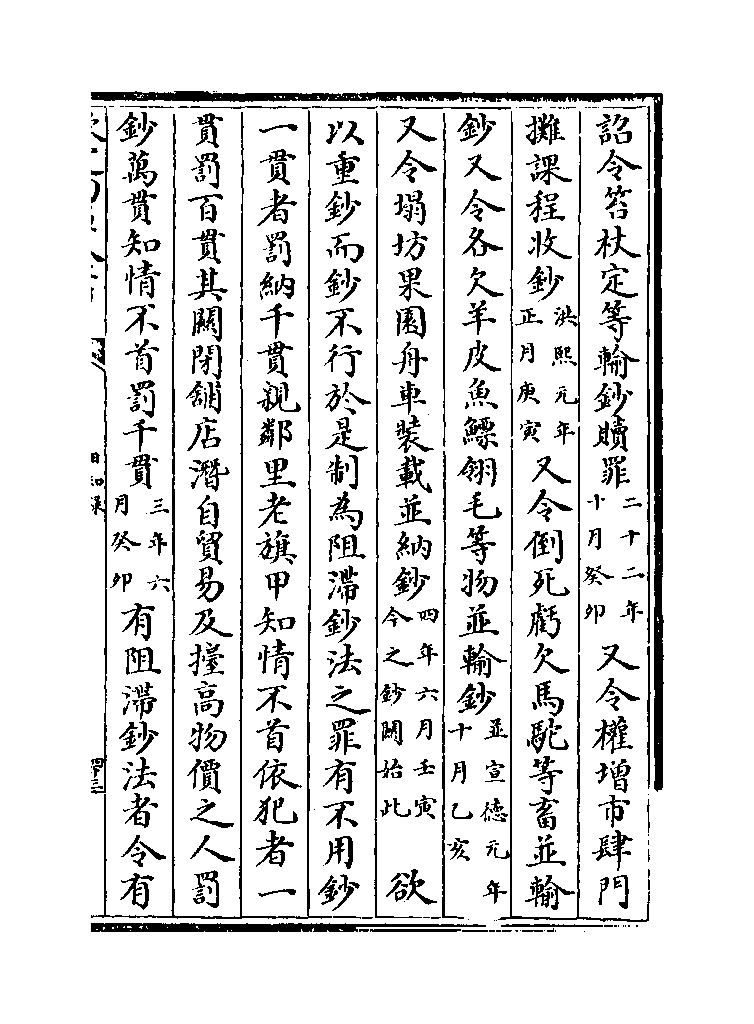 詔令笞杖定等輸鈔贖罪二十二年十月癸卯又令權增市肆門
攤課程收鈔洪熙元年正月庚寅又令倒死虧欠馬駝等畜並輸
鈔又令各欠羊皮魚鰾翎毛等物並輸鈔並宣德元年十月乙亥
又令塌坊果園舟車裝載並納鈔四年六月壬寅今之鈔關始此欲
以重鈔而鈔不行於是制為阻滯鈔法之罪有不用鈔
一貫者罰納千貫親鄰里老旗甲知情不首依犯者一
貫罰百貫其關閉舖店潛自貿易及擡高物價之人罰
鈔萬貫知情不首罰千貫三年六月癸卯有阻滯鈔法者令有
日知錄